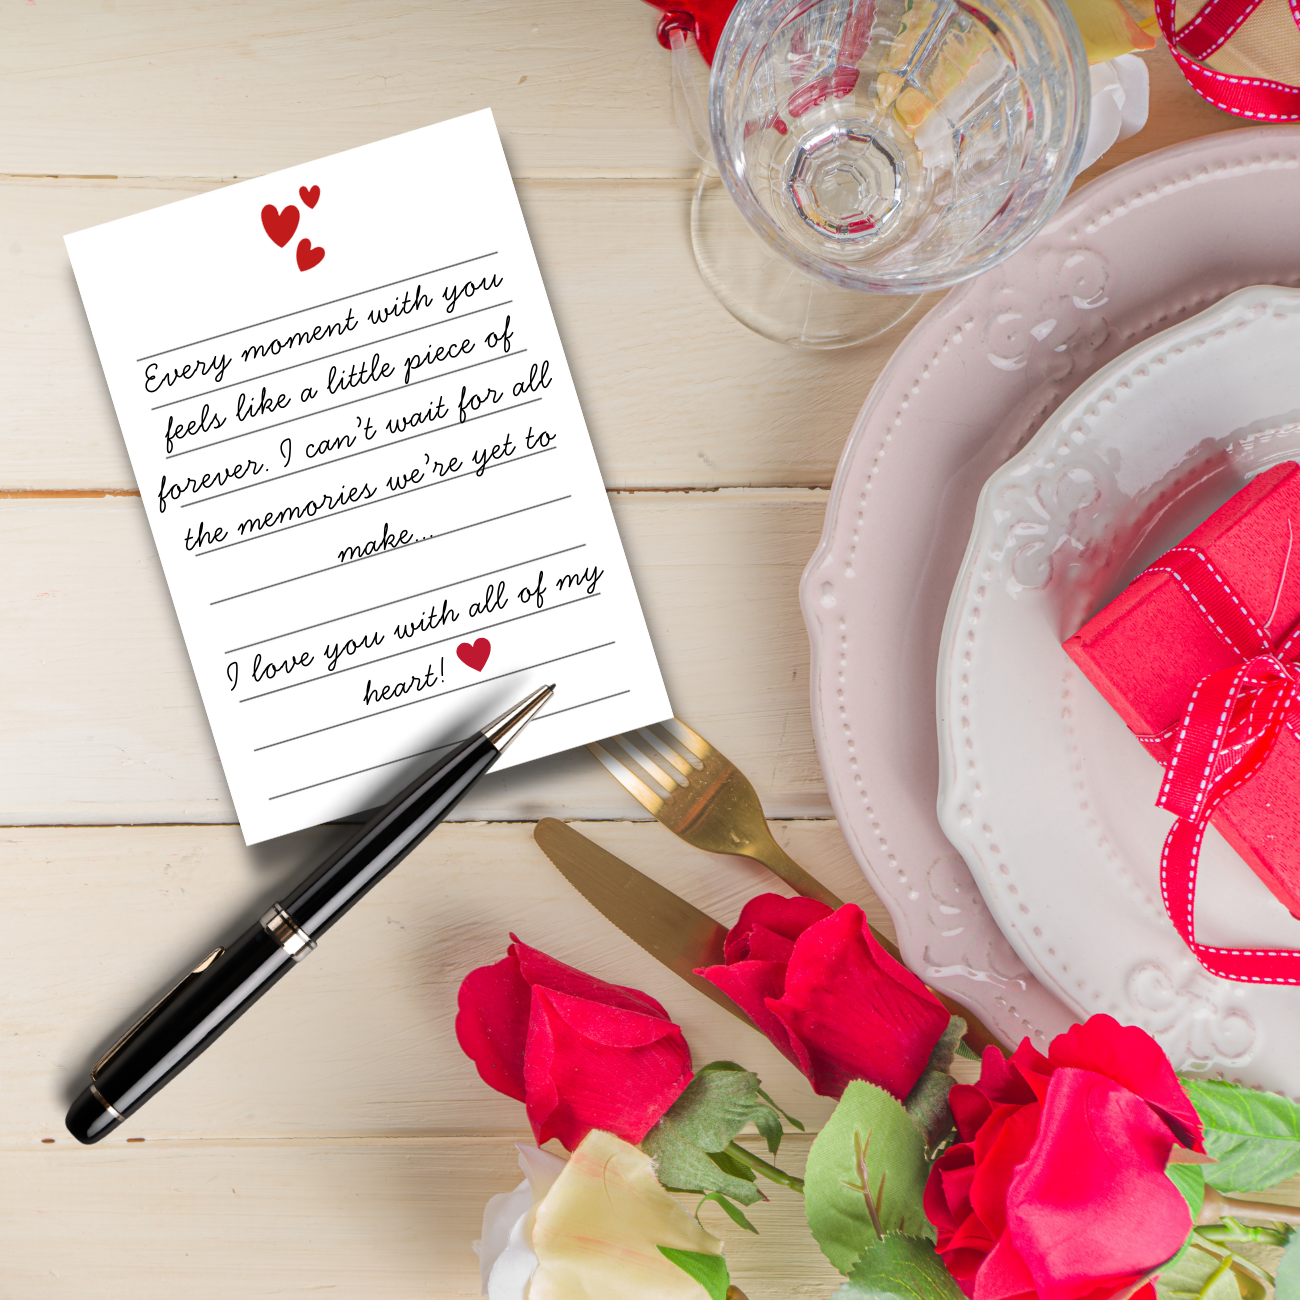 Every moment with you
feels like a little piece of
forever. I can't wait for all
the memories we're yet to
make...
I love you with all of my
heart!